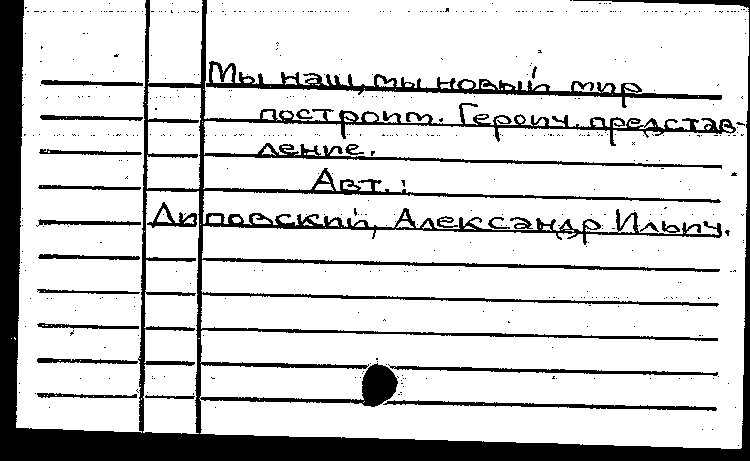 Мы наш, мы новый мир
построит. Героич. представ-
ление.
Авт.:
Липовский, Александр Ильич.